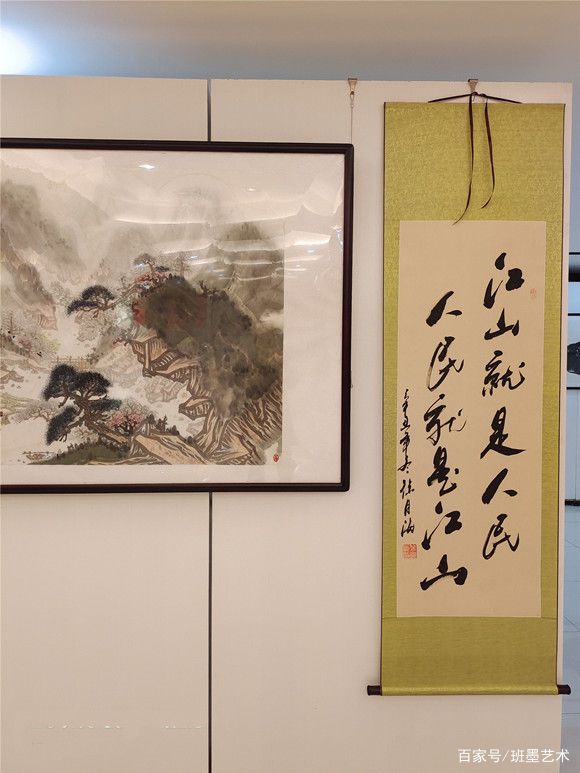 江山就是人民
人民就是江山
辛丑年冬徐月治
百家号/班墨艺术